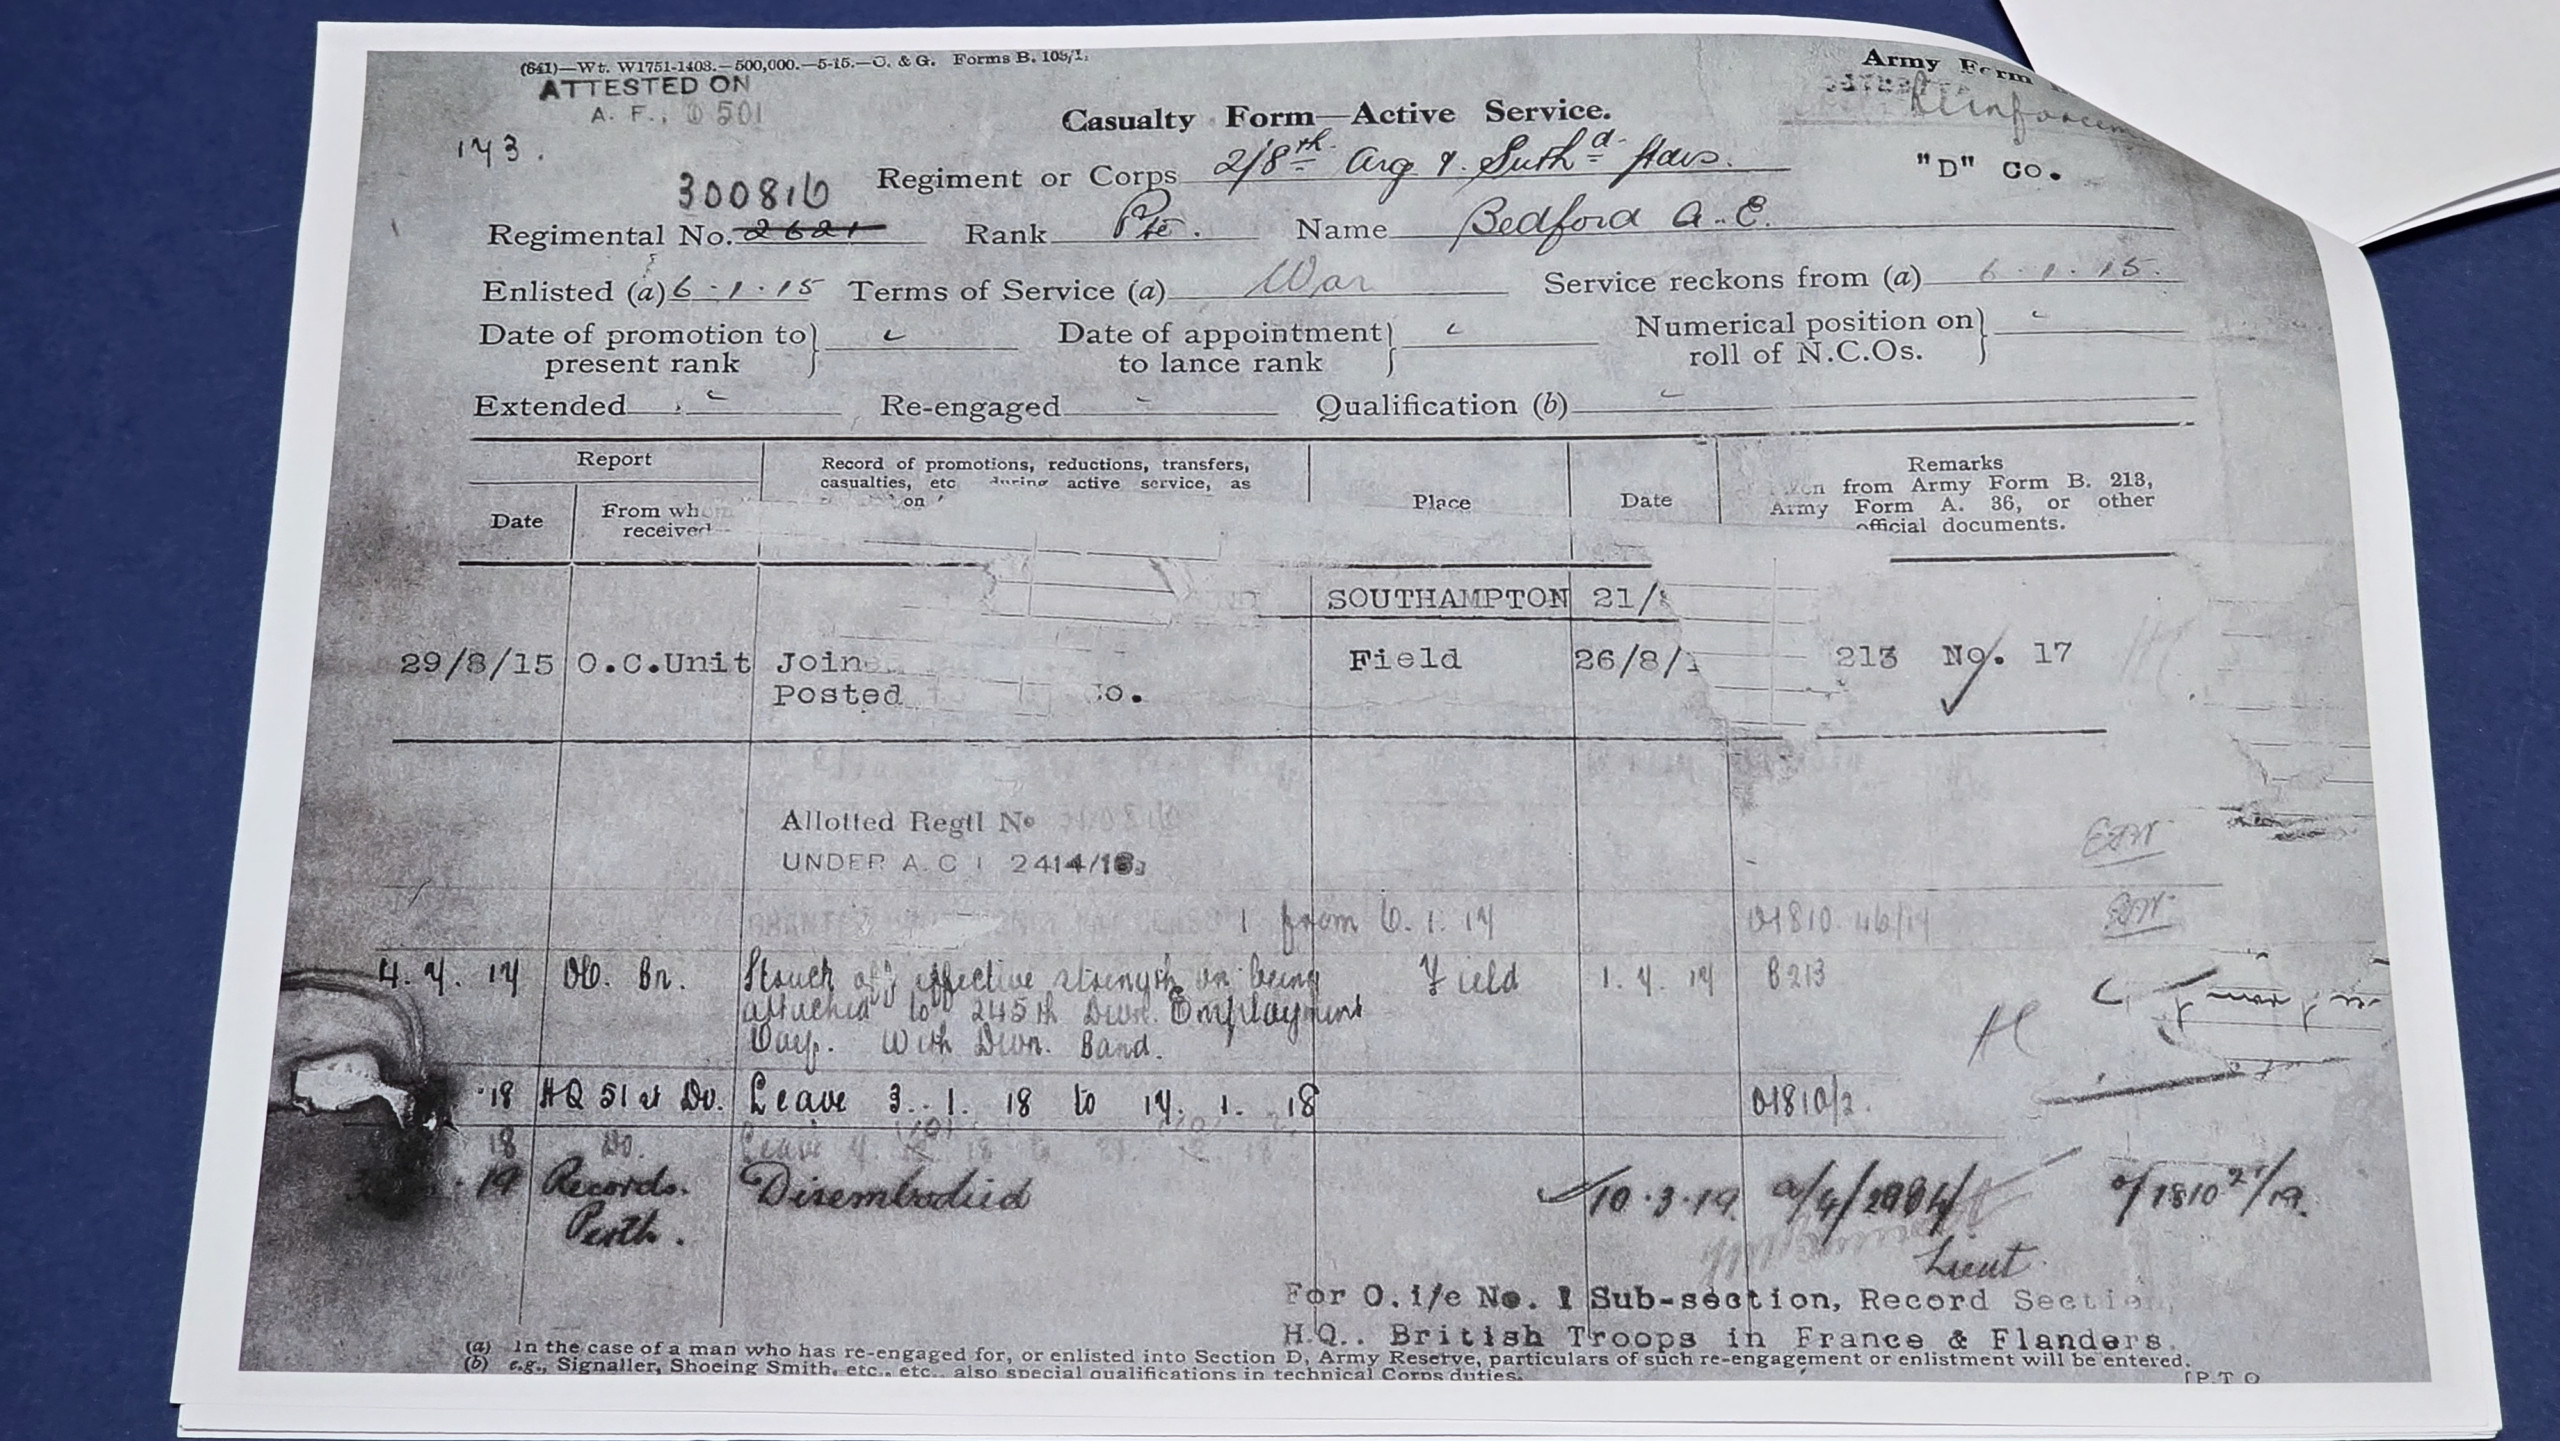 (641)—Wt. W1751-1403.—500,000.—5-15.—C. & G. Forms B. 103/1.
Army Form
ATTESTED ON
A. F., D 501
Casualty Form—Active Service.
173.
Regiment or Corps 2/8th Arg & Suthd Hdrs.
"D" Co.
300816
Regimental No. 2621 Rank Pte. Name Bedford A. E.
Enlisted (a) 6.1.15 Terms of Service (a) War Service reckons from (a) 6.1.15.
Date of promotion to present rank
Date of appointment to lance rank
Numerical position on roll of N.C.Os.
Extended Re-engaged Qualification (b)
Report
Date
From whom received
Record of promotions, reductions, transfers,
casualties, etc during active service, as
on
Place
Date
Remarks
from Army Form B. 213,
Army Form A. 36, or other
official documents.
SOUTHAMPTON 21/
29/8/15 O.C.Unit Join Field 26/8/1 213 No. 17
Posted Co.
Allotted Regtl No
UNDER A.C I 2414/16
from 6.1.17 01810 46/17
4.7.17 OC. Bn. Struck off effective strength on being Field 1.7.17 B213
attached to 245th Divnl. Employment
Coy. With Divn. Band.
18 HQ 51st Dv. Leave 3.1.18 to 17.1.18 01810/2.
18 Do. Leave
19 Records. Disembodied 10.3.19 01810 21/19.
Perth.
Lieut
For O.i/c No. 1 Sub-section, Record Section,
H.Q.. British Troops in France & Flanders.
(a) In the case of a man who has re-engaged for, or enlisted into Section D, Army Reserve, particulars of such re-engagement or enlistment will be entered.
(b) e.g., Signaller, Shoeing Smith, etc., etc., also special qualifications in technical Corps duties.
[P.T O